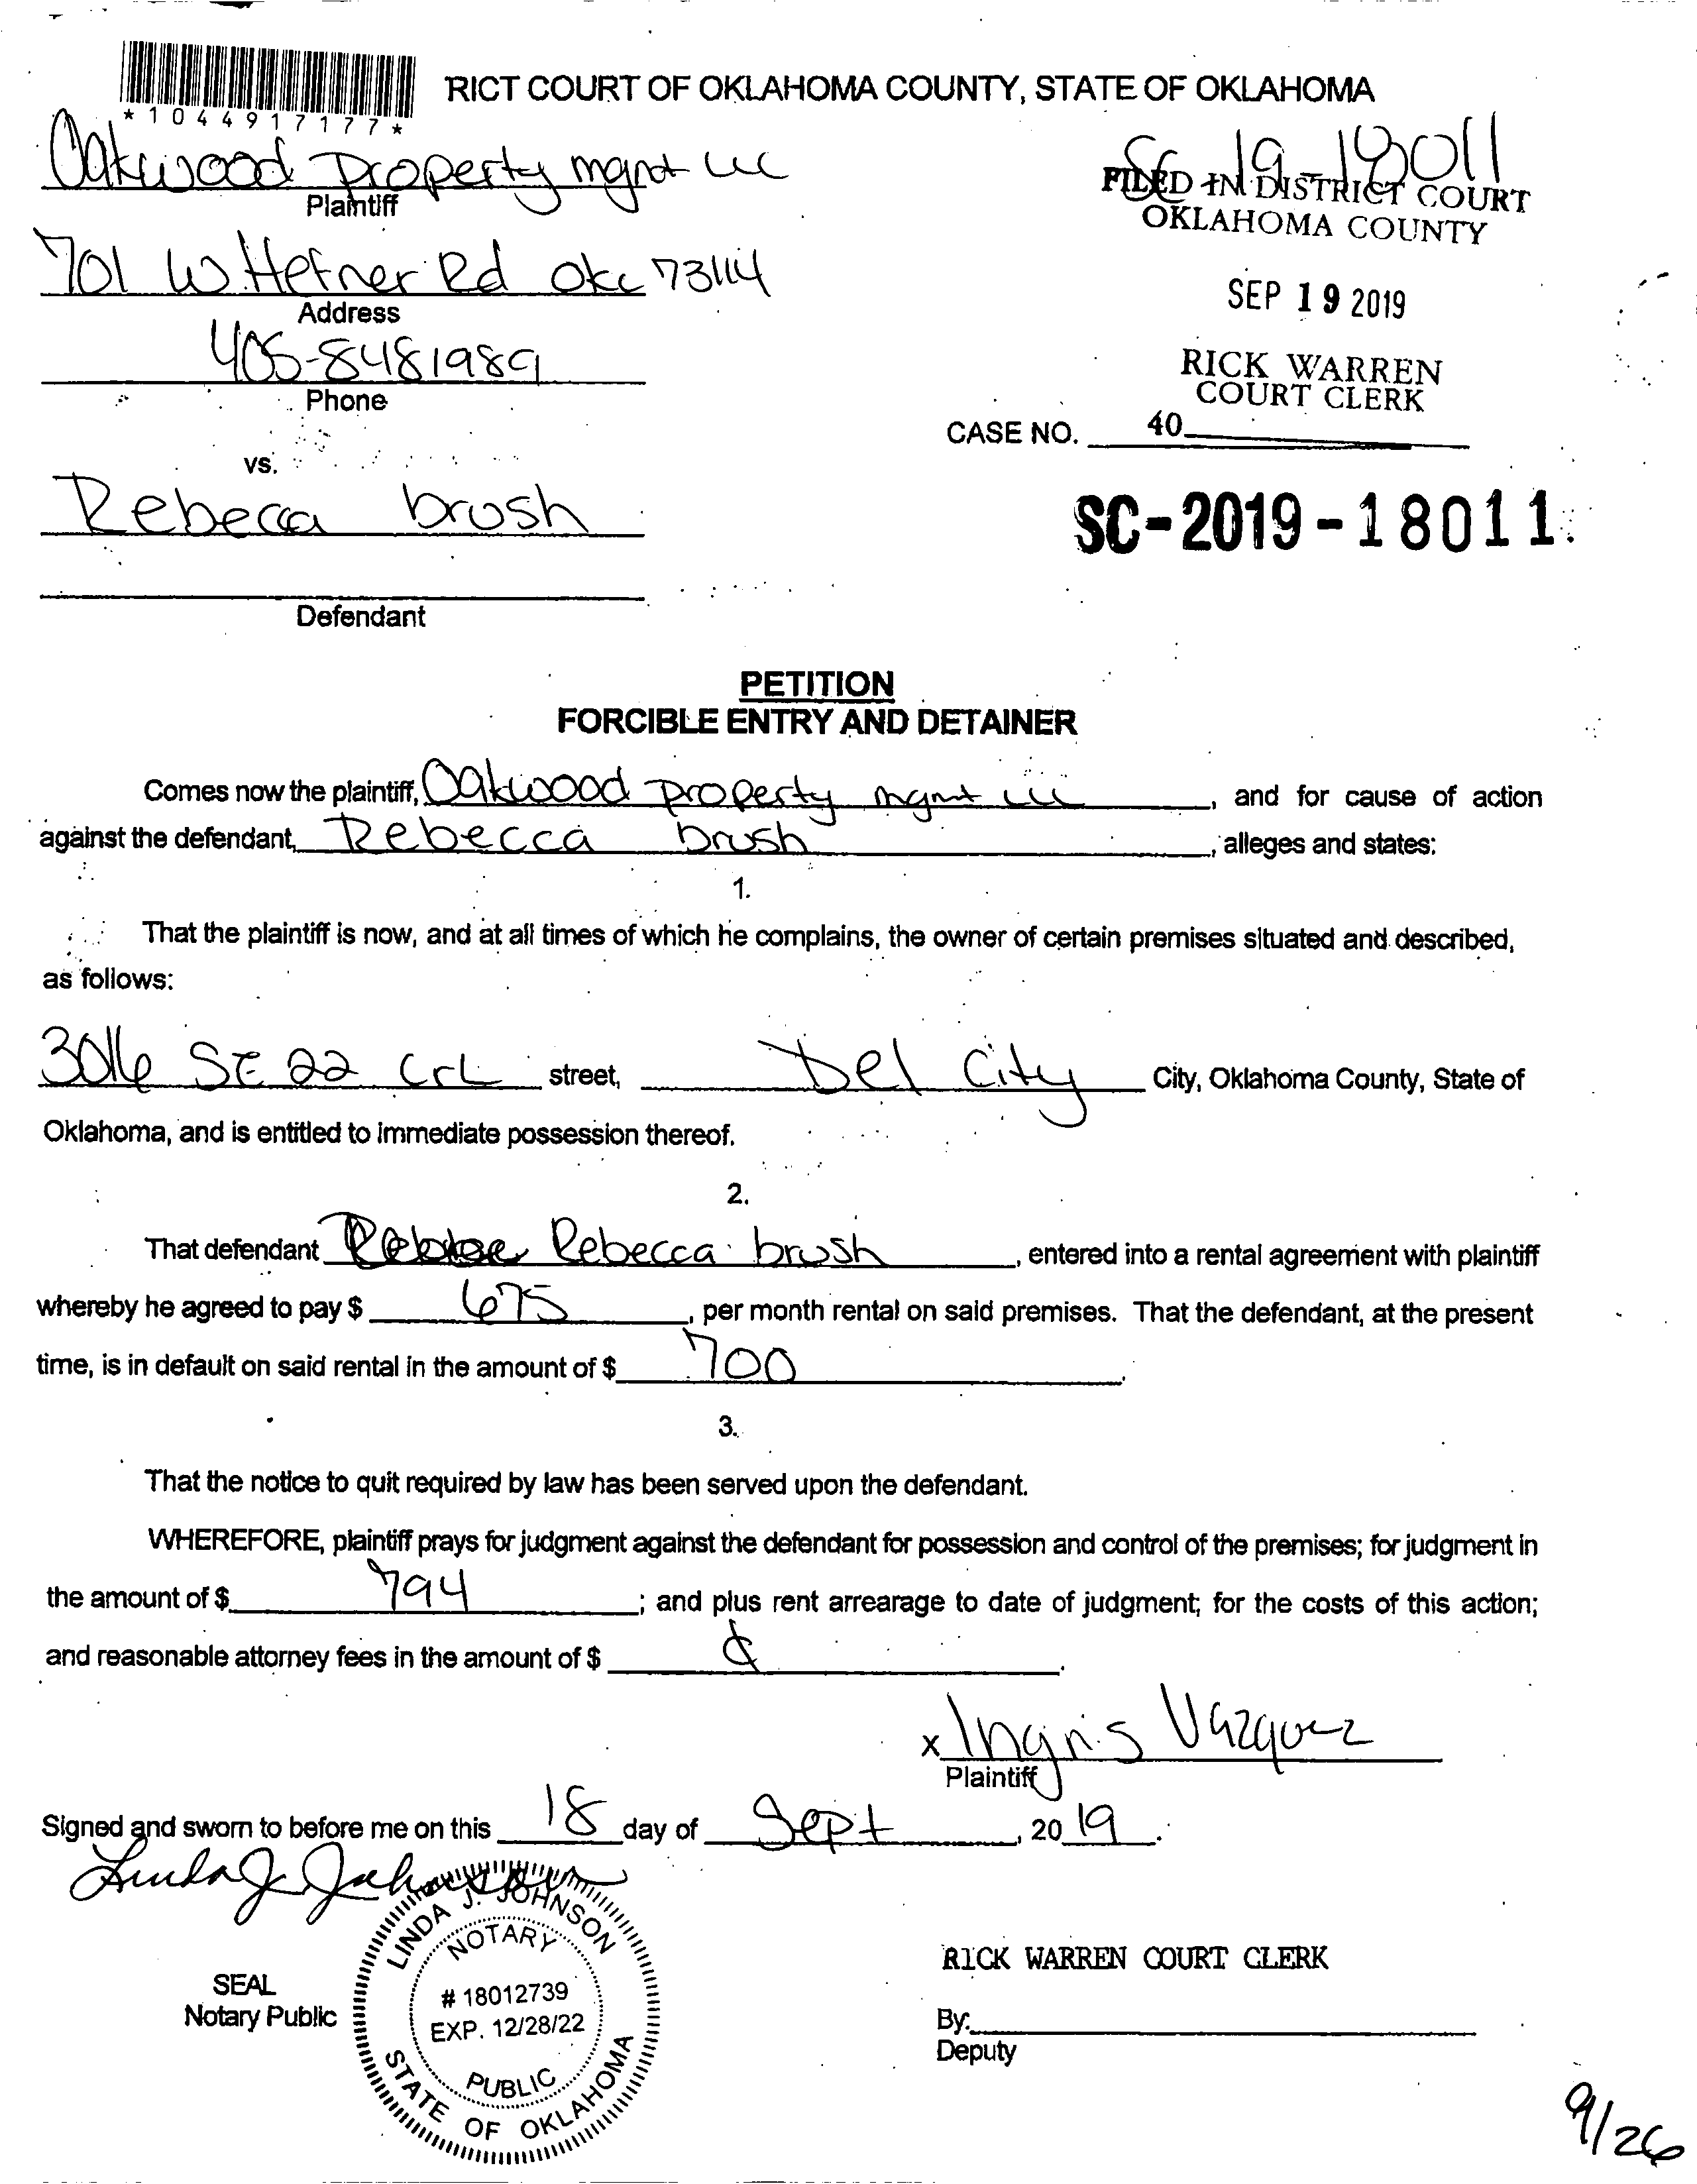 RICT COURT OF OKLAHOMA COUNTY, STATE OF OKLAHOMA
*1044917177*
Oakwood Property mgnt LLC
Plaintiff
SC 19-18011
FILED IN DISTRICT COURT
OKLAHOMA COUNTY
701 W. Hefner Rd Okc 73114
Address
SEP 19 2019
405-8481989
Phone
RICK WARREN
COURT CLERK
CASE NO. 40
vs.
Rebecca brush
SC-2019-18011
Defendant
PETITION
FORCIBLE ENTRY AND DETAINER
Comes now the plaintiff, Oakwood property mgmt LLC, and for cause of action
against the defendant, Rebecca brush, alleges and states:
1.
That the plaintiff is now, and at all times of which he complains, the owner of certain premises situated and described,
as follows:
3016 SE 22 CrL street, Del City City, Oklahoma County, State of
Oklahoma, and is entitled to immediate possession thereof.
2.
That defendant Rebecca brush, entered into a rental agreement with plaintiff
whereby he agreed to pay $ 675, per month rental on said premises. That the defendant, at the present
time, is in default on said rental in the amount of $ 700.
3.
That the notice to quit required by law has been served upon the defendant.
WHEREFORE, plaintiff prays for judgment against the defendant for possession and control of the premises; for judgment in
the amount of $ 794; and plus rent arrearage to date of judgment; for the costs of this action;
and reasonable attorney fees in the amount of $
x Ingris Vazquez
Plaintiff
Signed and sworn to before me on this 18 day of Sept, 2019.
Linda J Johnson
LINDA J. JOHNSON
NOTARY
# 18012739
EXP. 12/28/22
PUBLIC
STATE OF OKLAHOMA
SEAL
Notary Public
RICK WARREN COURT CLERK
By:
Deputy
9/26